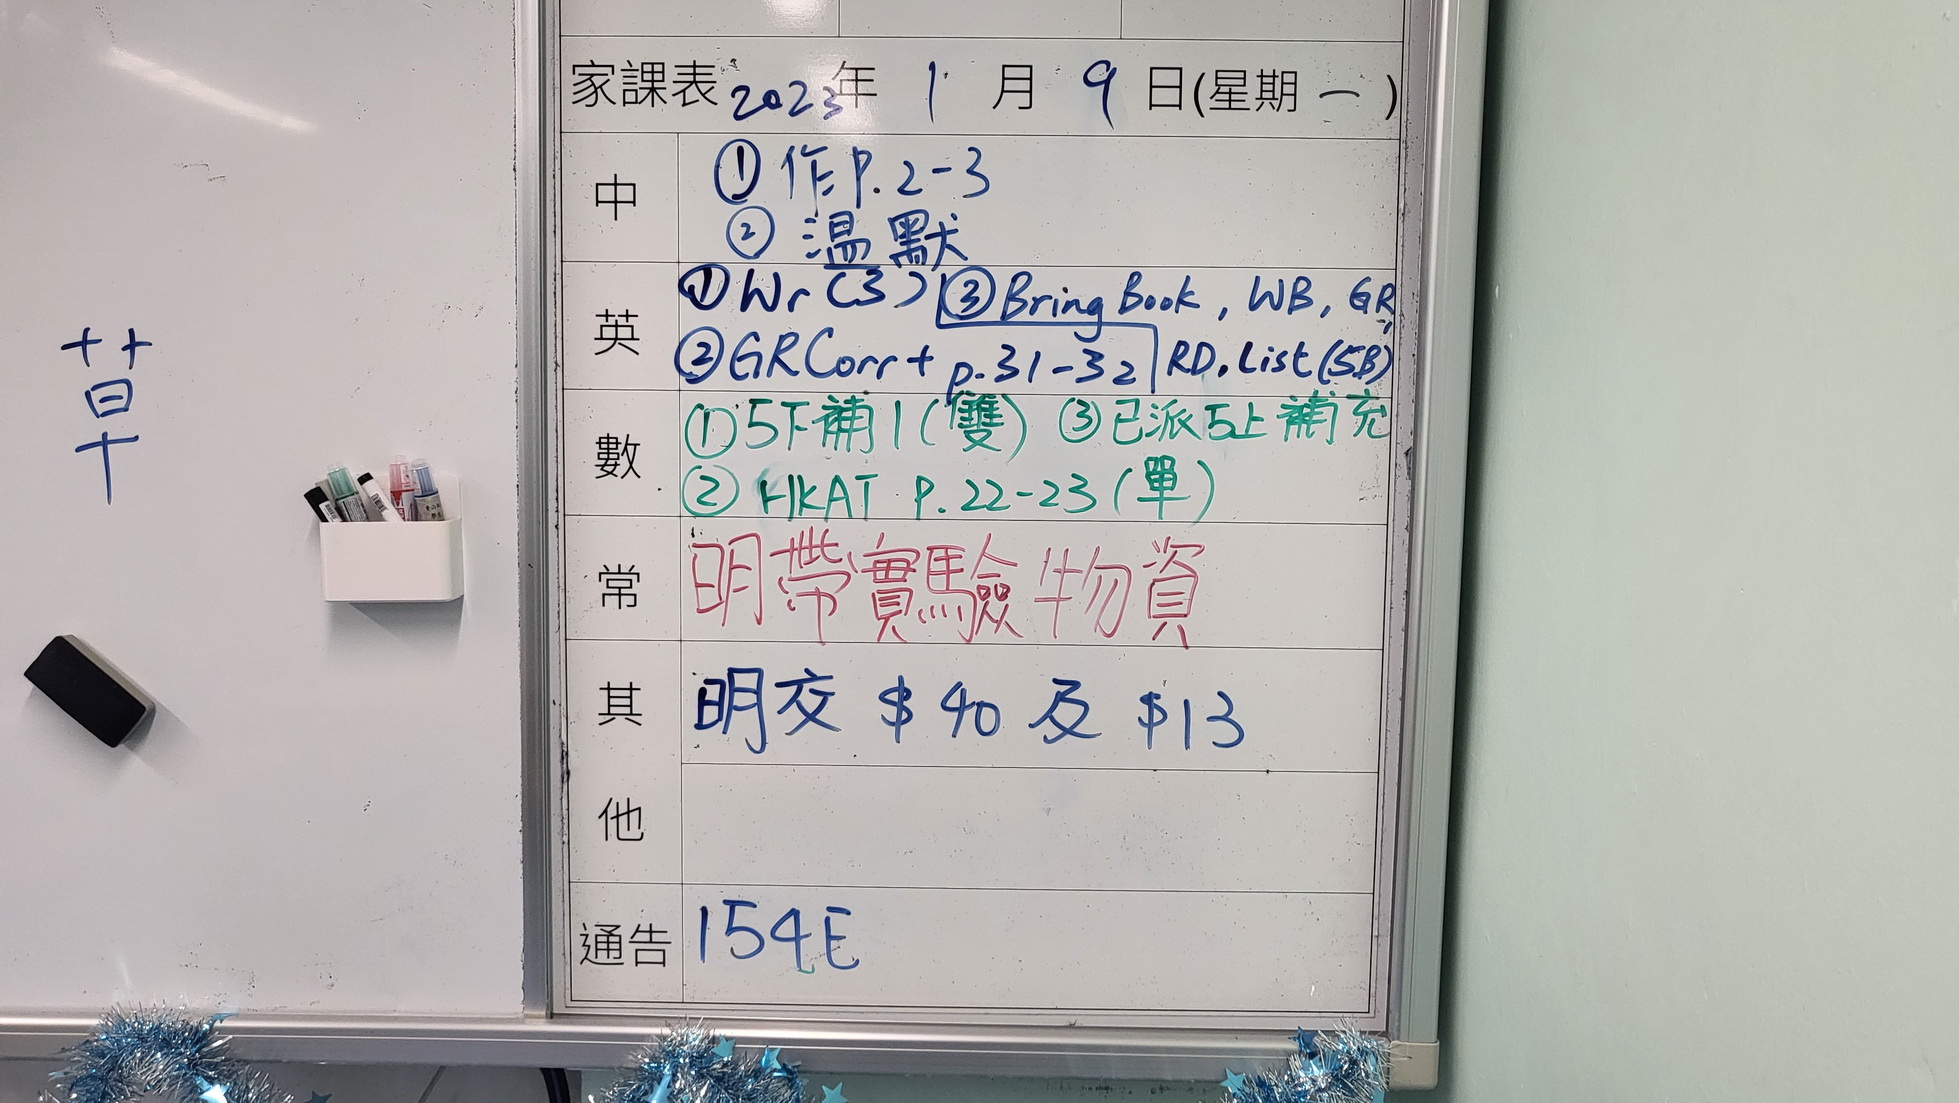 草
家課表 2023年 1 月 9 日(星期 一 )
中
① 作 P.2-3
② 溫默
英
① Wr (3) ③ Bring Book, WB, GR,
② GR Corr + p.31-32 RD. List (5B)
數
① 5下補1(雙) ③ 已派5上補充
② HKAT P.22-23 (單)
常
明帶實驗物資
其他
明交 $40 及 $13
通告
154E